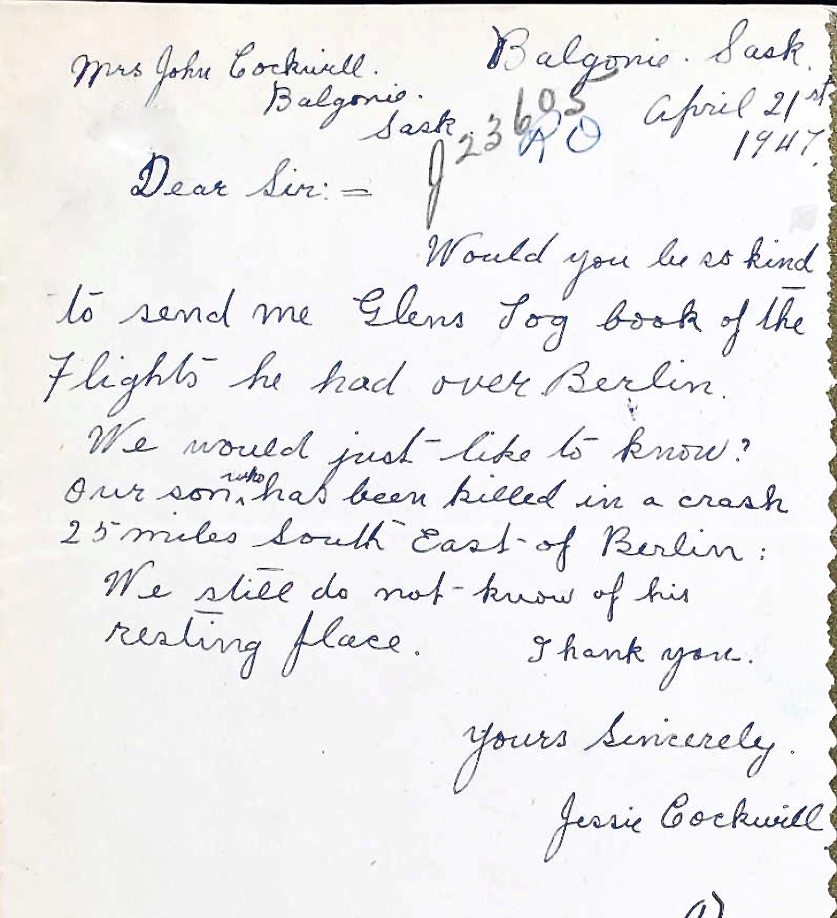 Mrs John Cockwill.
Balgonie.
Sask.
Balgonie. Sask.
April 21st
1947.
J23605
RO
Dear Sir: =
Would you be so kind
to send me Glens Log book of the
Flights he had over Berlin.
We would just like to know?
Our son who has been killed in a crash
25 miles South East of Berlin:
We still do not know of his
resting place. Thank you.
Yours Sincerely.
Jessie Cockwill